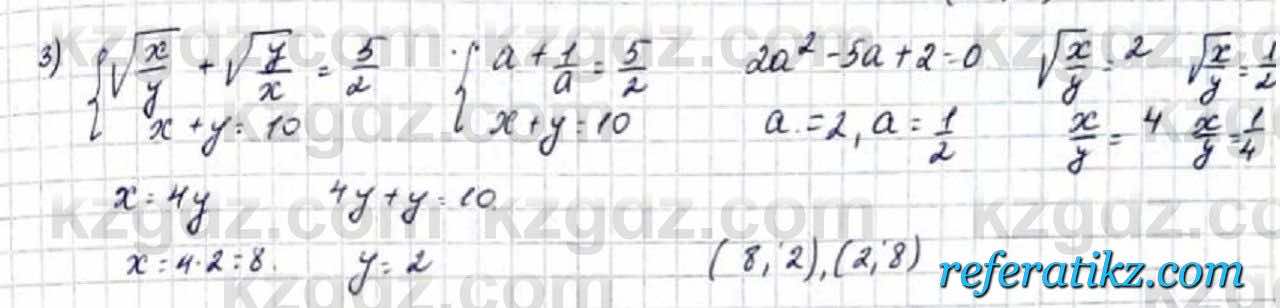 3) { √(x/y) + √(y/x) = 5/2   { a + 1/a = 5/2   2a² - 5a + 2 = 0   √(x/y) = 2   √(x/y) = 1/2
x + y = 10   x + y = 10   a = 2, a = 1/2   x/y = 4   x/y = 1/4
x = 4y   4y + y = 10
x = 4·2 = 8.   y = 2   (8; 2), (2; 8)
kzgdz.com kzgdz.com kzgdz.com
referatikz.com